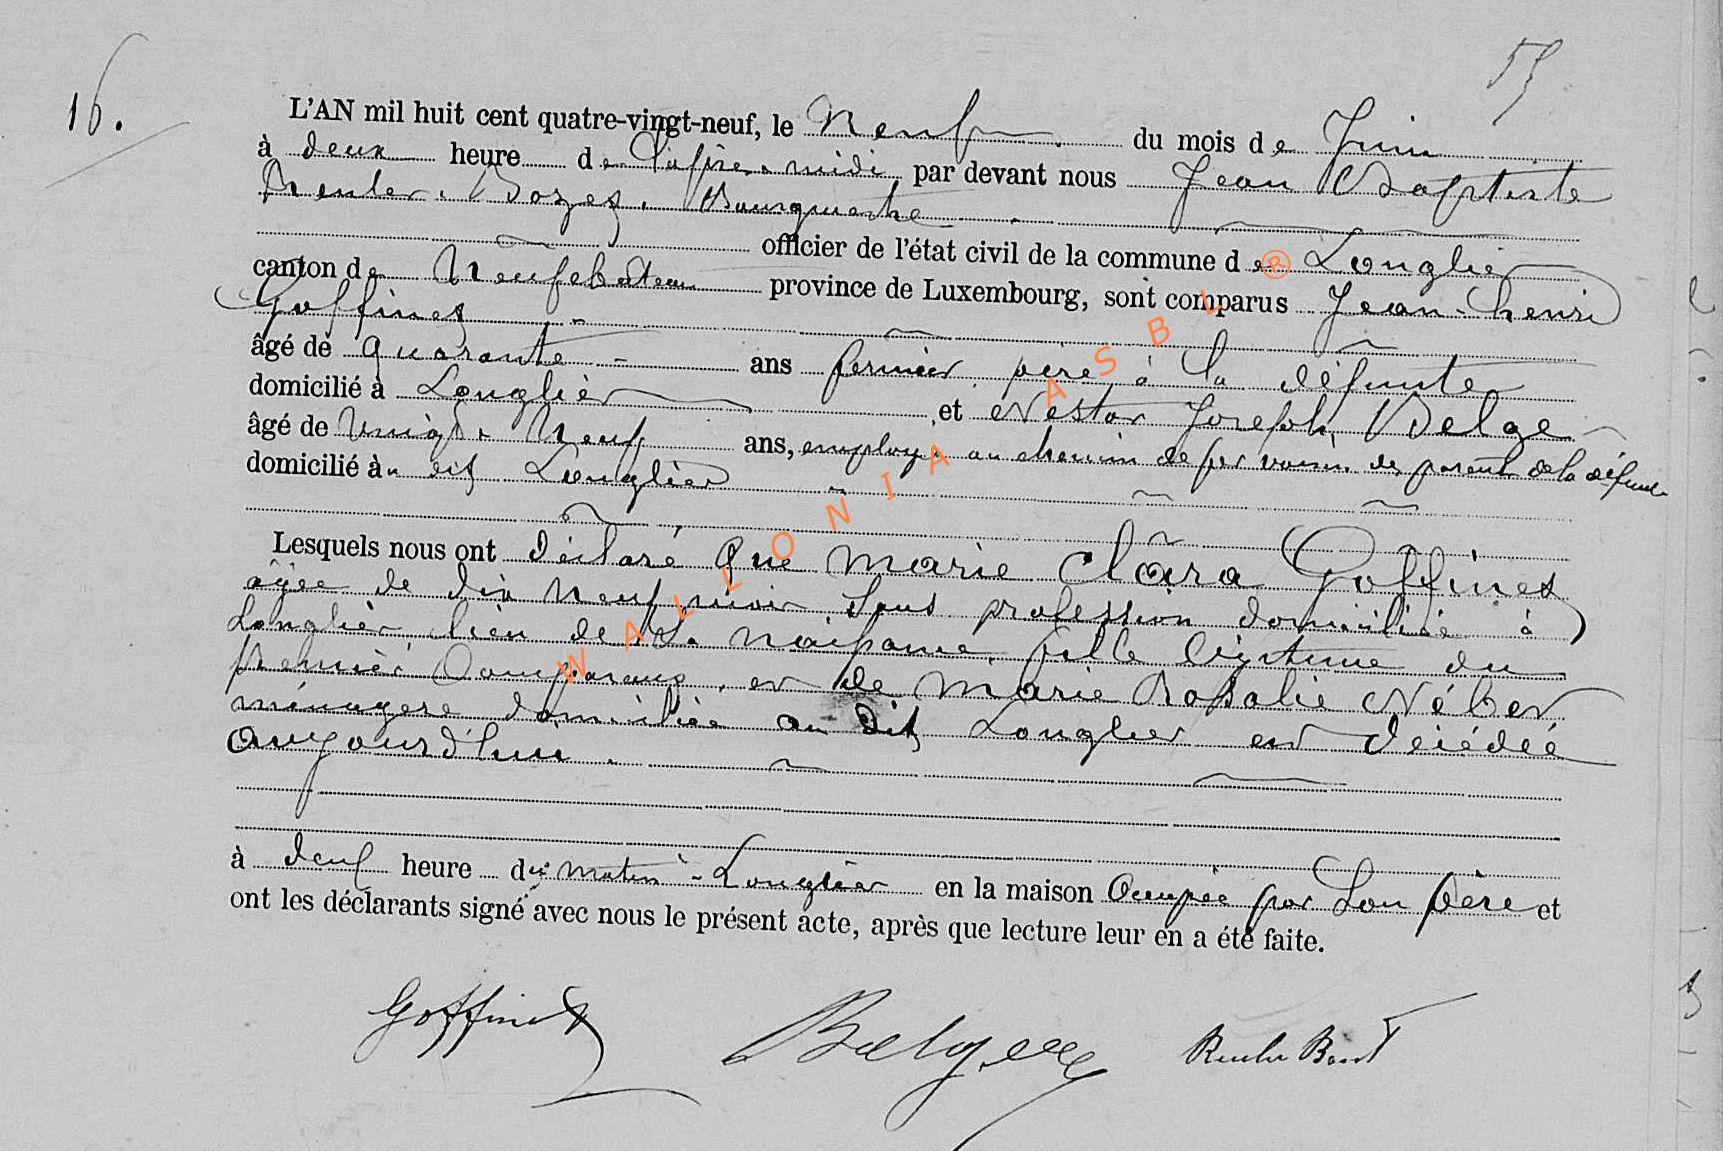 55
16.
L'AN mil huit cent quatre-vingt-neuf, le Neuf du mois de Juin
à deux heure de l'après-midi par devant nous Jean Baptiste
Reuler. Bozet. Bourgmestre
officier de l'état civil de la commune de Longlier
canton de Neufchâteau province de Luxembourg, sont comparus Jean-henri
Goffinet
âgé de quarante ans fermier père à la défunte
domicilié à Longlier et Nestor Joseph Belge
âgé de Vingt Neuf ans, employé au chemin de fer voisin des parents de la défunte
domicilié au dit Longlier
Lesquels nous ont déclaré que marie Clara Goffinet
âgée de dix neuf mois sans profession domiciliée à
Longlier lieu de sa naissance, fille légitime du
premier Comparant. et de Marie Rosalie Néber
ménagère domiciliée au dit Longlier est décédée
aujourd'hui.
à deuf heure du matin à Longlier en la maison Occupée par Son Père et
ont les déclarants signé avec nous le présent acte, après que lecture leur en a été faite.
Goffinet Belge
WALLONIA ASBL ®